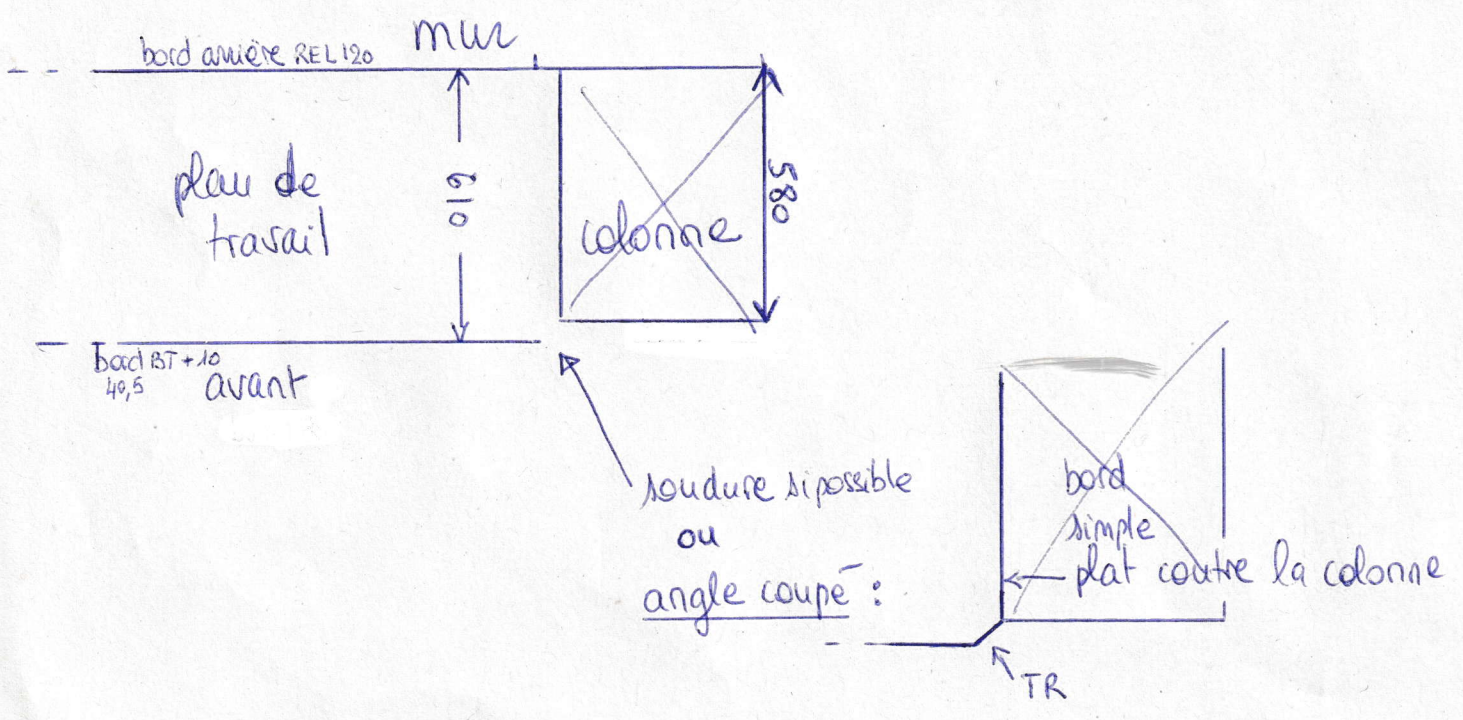 mur
bord arrière REL120
plan de
travail
610
colonne
580
bord BT + 10
40,5
avant
soudure si possible
ou
angle coupé :
bord
simple
plat contre la colonne
TR